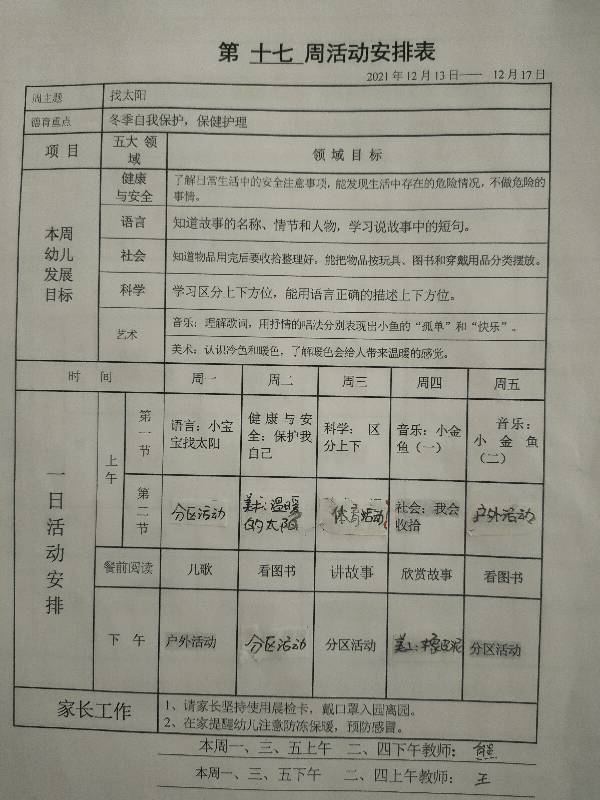 第 十七 周活动安排表
2021 年 12 月 13 日—— 12 月 17 日
周主题 找太阳
德育重点 冬季自我保护，保健护理
项 目 五大 领域 领 域 目 标
本周幼儿发展目标
健康与安全 了解日常生活中的安全注意事项，能发现生活中存在的危险情况，不做危险的
事情。
语言 知道故事的名称、情节和人物，学习说故事中的短句。
社会 知道物品用完后要收拾整理好；能把物品按玩具、图书和穿戴用品分类摆放。
科学 学习区分上下方位，能用语言正确的描述上下方位。
艺术 音乐：理解歌词，用抒情的唱法分别表现出小鱼的“孤单”和“快乐”。
美术：认识冷色和暖色，了解暖色会给人带来温暖的感觉。
时 间 周一 周二 周三 周四 周五
一日活动安排
上午
第一节 语言：小宝宝找太阳 健康与安全：保护我自己 科学：区分上下 音乐：小金鱼（一） 音乐：小金鱼（二）
第二节 分区活动 美术：温暖的太阳 体育活动 社会：我会收拾 户外活动
餐前阅读 儿歌 看图书 讲故事 欣赏故事 看图书
下 午 户外活动 分区活动 分区活动 美工：橡皮泥 分区活动
家长工作 1、请家长坚持使用晨检卡，戴口罩入园离园。
2、在家提醒幼儿注意防冻保暖，预防感冒。
本周一、三、五上午 二、四下午教师： 熊
本周一、三、五下午 二、四上午教师： 王